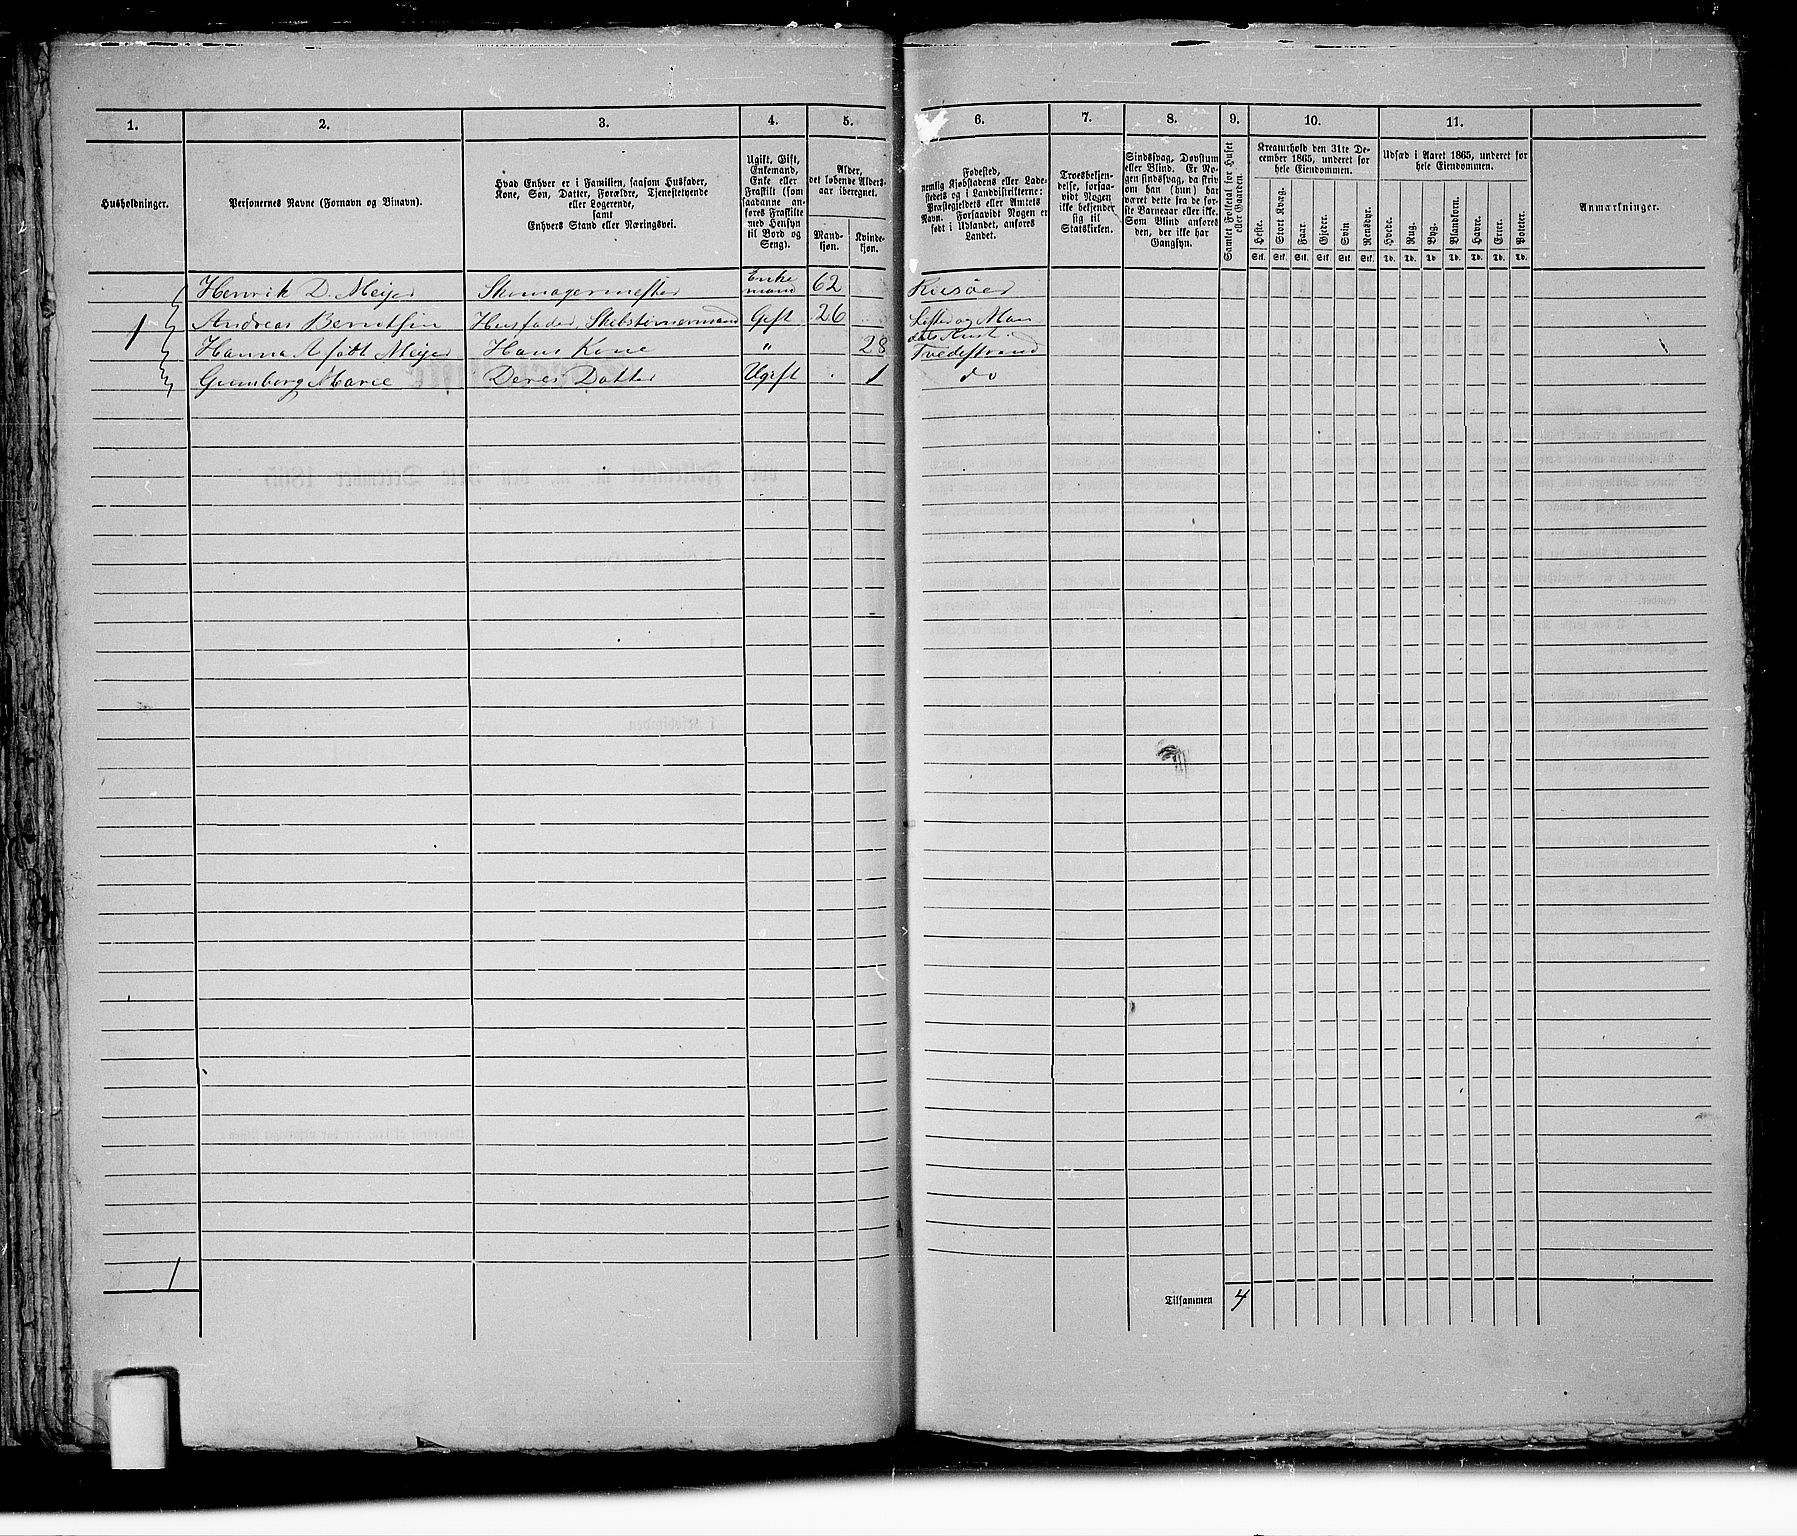 1. 2. 3. 4. 5. 6. 7. 8. 9. 10. 11.
Husholdninger.
Personernes Navne (Fornavn og Binavn).
Hvad Enhver er i Familien, saasom Husfader,
Kone, Søn, Datter, Forældre, Tjenestetyende
eller Logerende,
samt
Enhvers Stand eller Næringsvei.
Ugift, Gift,
Enkemand,
Enke eller
Fraskilt (som
saadanne an-
føres Fraskilte
med Hensyn
til Bord og
Seng).
Alder,
det løbende Alders-
aar iberegnet.
Mand-
kjøn.
Kvinde-
kjøn.
Fødested,
nemlig Kjøbstadens eller Lade-
stedets og i Landdistrikterne:
Præstegjeldets eller Amtets
Navn. Forsaavidt Nogen er
født i Udlandet, anføres
Landet.
Troesbekjen-
delse, forsaa-
vidt Nogen
ikke bekjender
sig til
Statskirken.
Sindssvag, Døvstum
eller Blind. Er No-
gen sindssvag, da skriv
om han (hun) har
været dette fra de før-
ste Barneaar eller ikke.
Som Blind anføres
den, der ikke har
Gangsyn.
Samlet Folketal for Huset
eller Gaarden.
Kreaturhold den 31te De-
cember 1865, underet for
hele Eiendommen.
Heste. Stort Kvæg. Faar. Gjeder. Svin Rensdyr.
Stk. Stk. Stk. Stk. Stk. Stk.
Udsæd i Aaret 1865, underet for
hele Eiendommen.
Hvede. Rug. Byg. Blandkorn. Havre. Erter. Poteter.
Td. Td. Td. Td. Td. Td. Td.
Anmærkninger.
Henrik D. Meijer Skomagermester Enke mand 62 Riisöer
1 Andreas Berntsen Husfader, Skibstömermand Gift 26 Lister og Man dals Amt
Hanna A født Meijer Hans Kone " 28 Tvedestrand
Gunborg Marie Deres Datter Ugift 1 do
1
Tilsammen 4